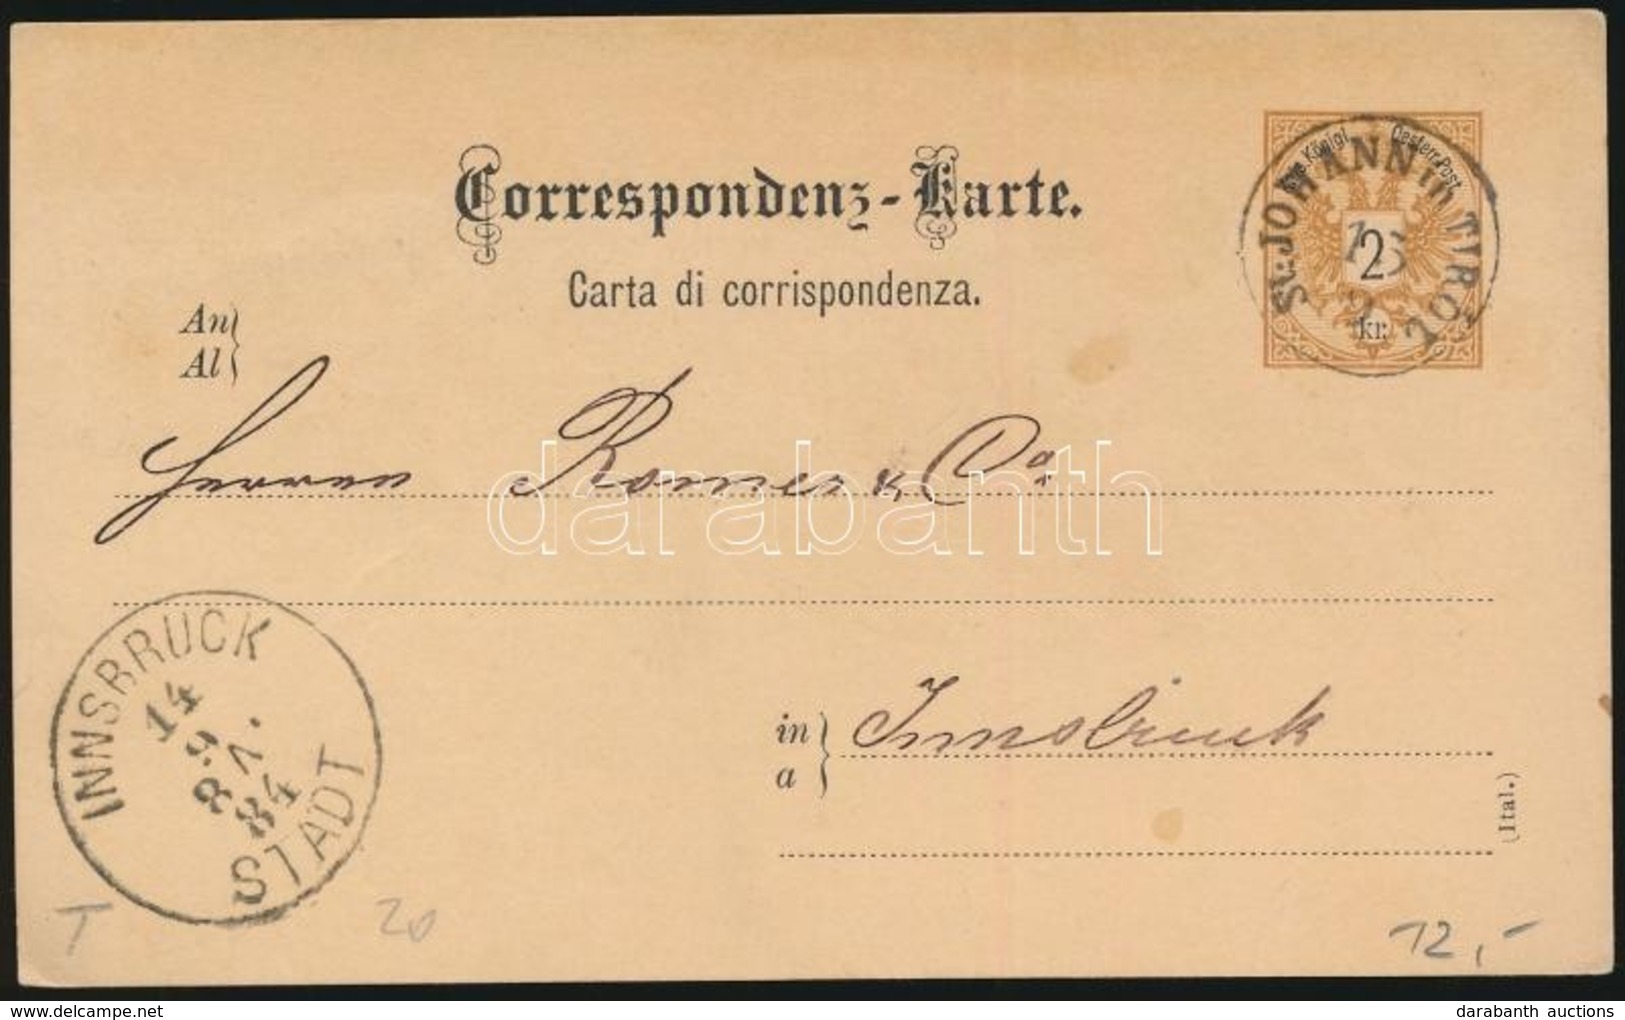 Correspondenz-Karte.
Carta di corrispondenza.
Kais. Königl. Oesterr. Post
2
kr.
ST. JOHANN in TIROL
13
9
An
Al
Herren Romer & Co
darabanth
INNSBRUCK
14
9
8 V.
84
STADT
in
a
Innsbruck
(Ital.)
T
20
12,-
darabanth auctions